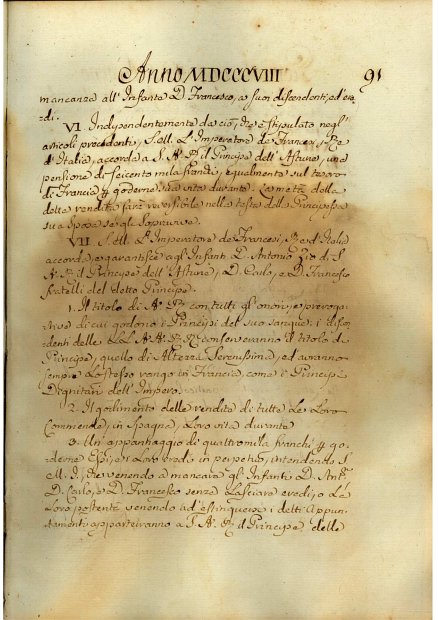 Anno MDCCCVIII 91
mancanza all' Infante D. Francesco, a suoi discendenti, ed ere-
di.
VI. Indipendentemente da ciò, che è stipulato negl'
articoli precedenti, S. M. L' Imperatore de Francesi, Re
d' Italia, accorda a S. A. R. il Principe dell' Asturie, una
pensione di seicento mila franchi, egualmente sul tesoro
di Francia p goderne sua vita durante. La metà della
detta rendita sarà reversibile nella testa della Principessa
sua sposa se gli sopravive.
VII. S. M. L' Imperatore de Francesi, Re d' Italia
accorda, e garantisce agl' Infanti D. Antonio Zio di S.
A. R. il Principe dell' Asturie, D. Carlo, e D. Francesco
fratelli del detto Principe.
1. Il titolo di A. R. con tutti gl' onori, e preroga-
tive di cui godono i Principi del suo sangue: i discen-
denti delle LL. AA. RR. conserveranno il titolo di
Principe, quello di Altezza Serenissima, ed avranno
sempre lo stesso rango in Francia, come i Principi
Dignitari dell' Impero.
2. Il godimento delle rendite di tutte le Loro
Commende, in Spagna, Loro vita durante
3. Un' appannaggio di quattromila franchi p go-
derne Essi, e i Loro eredi in perpetuo, intendendo S.
M. I., che venendo a mancare gl' Infanti D. Ant.
D. Carlo, e D. Francesco senza lasciare eredi, o le
Loro posterità venendo ad estinguersi i detti Appun-
tamenti apparteranno a S. A. R. il Principe delle